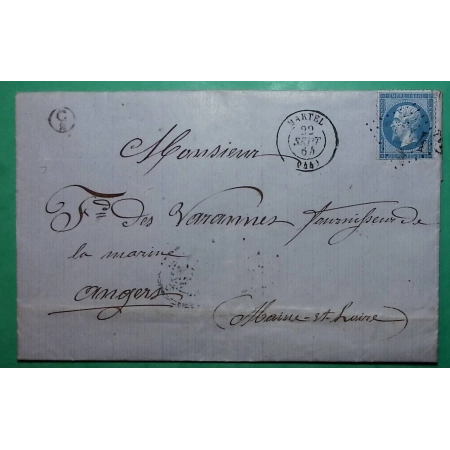 C
MARTEL
22
SEPT
64
(44)
EMPIRE FRANC
Monsieur
Fd. des Varannes fournisseur de
la marine
angers
(Maine-et-Loire)